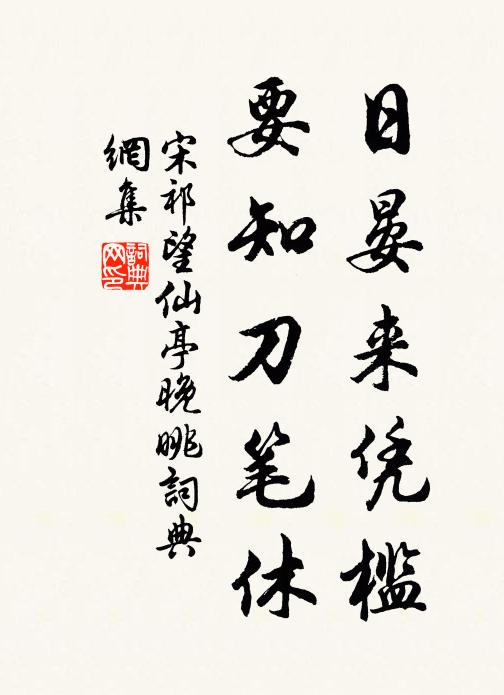 日晏来凭槛
要知刀笔休
宋祁望仙亭晚眺詞典
網集
詞典
网印